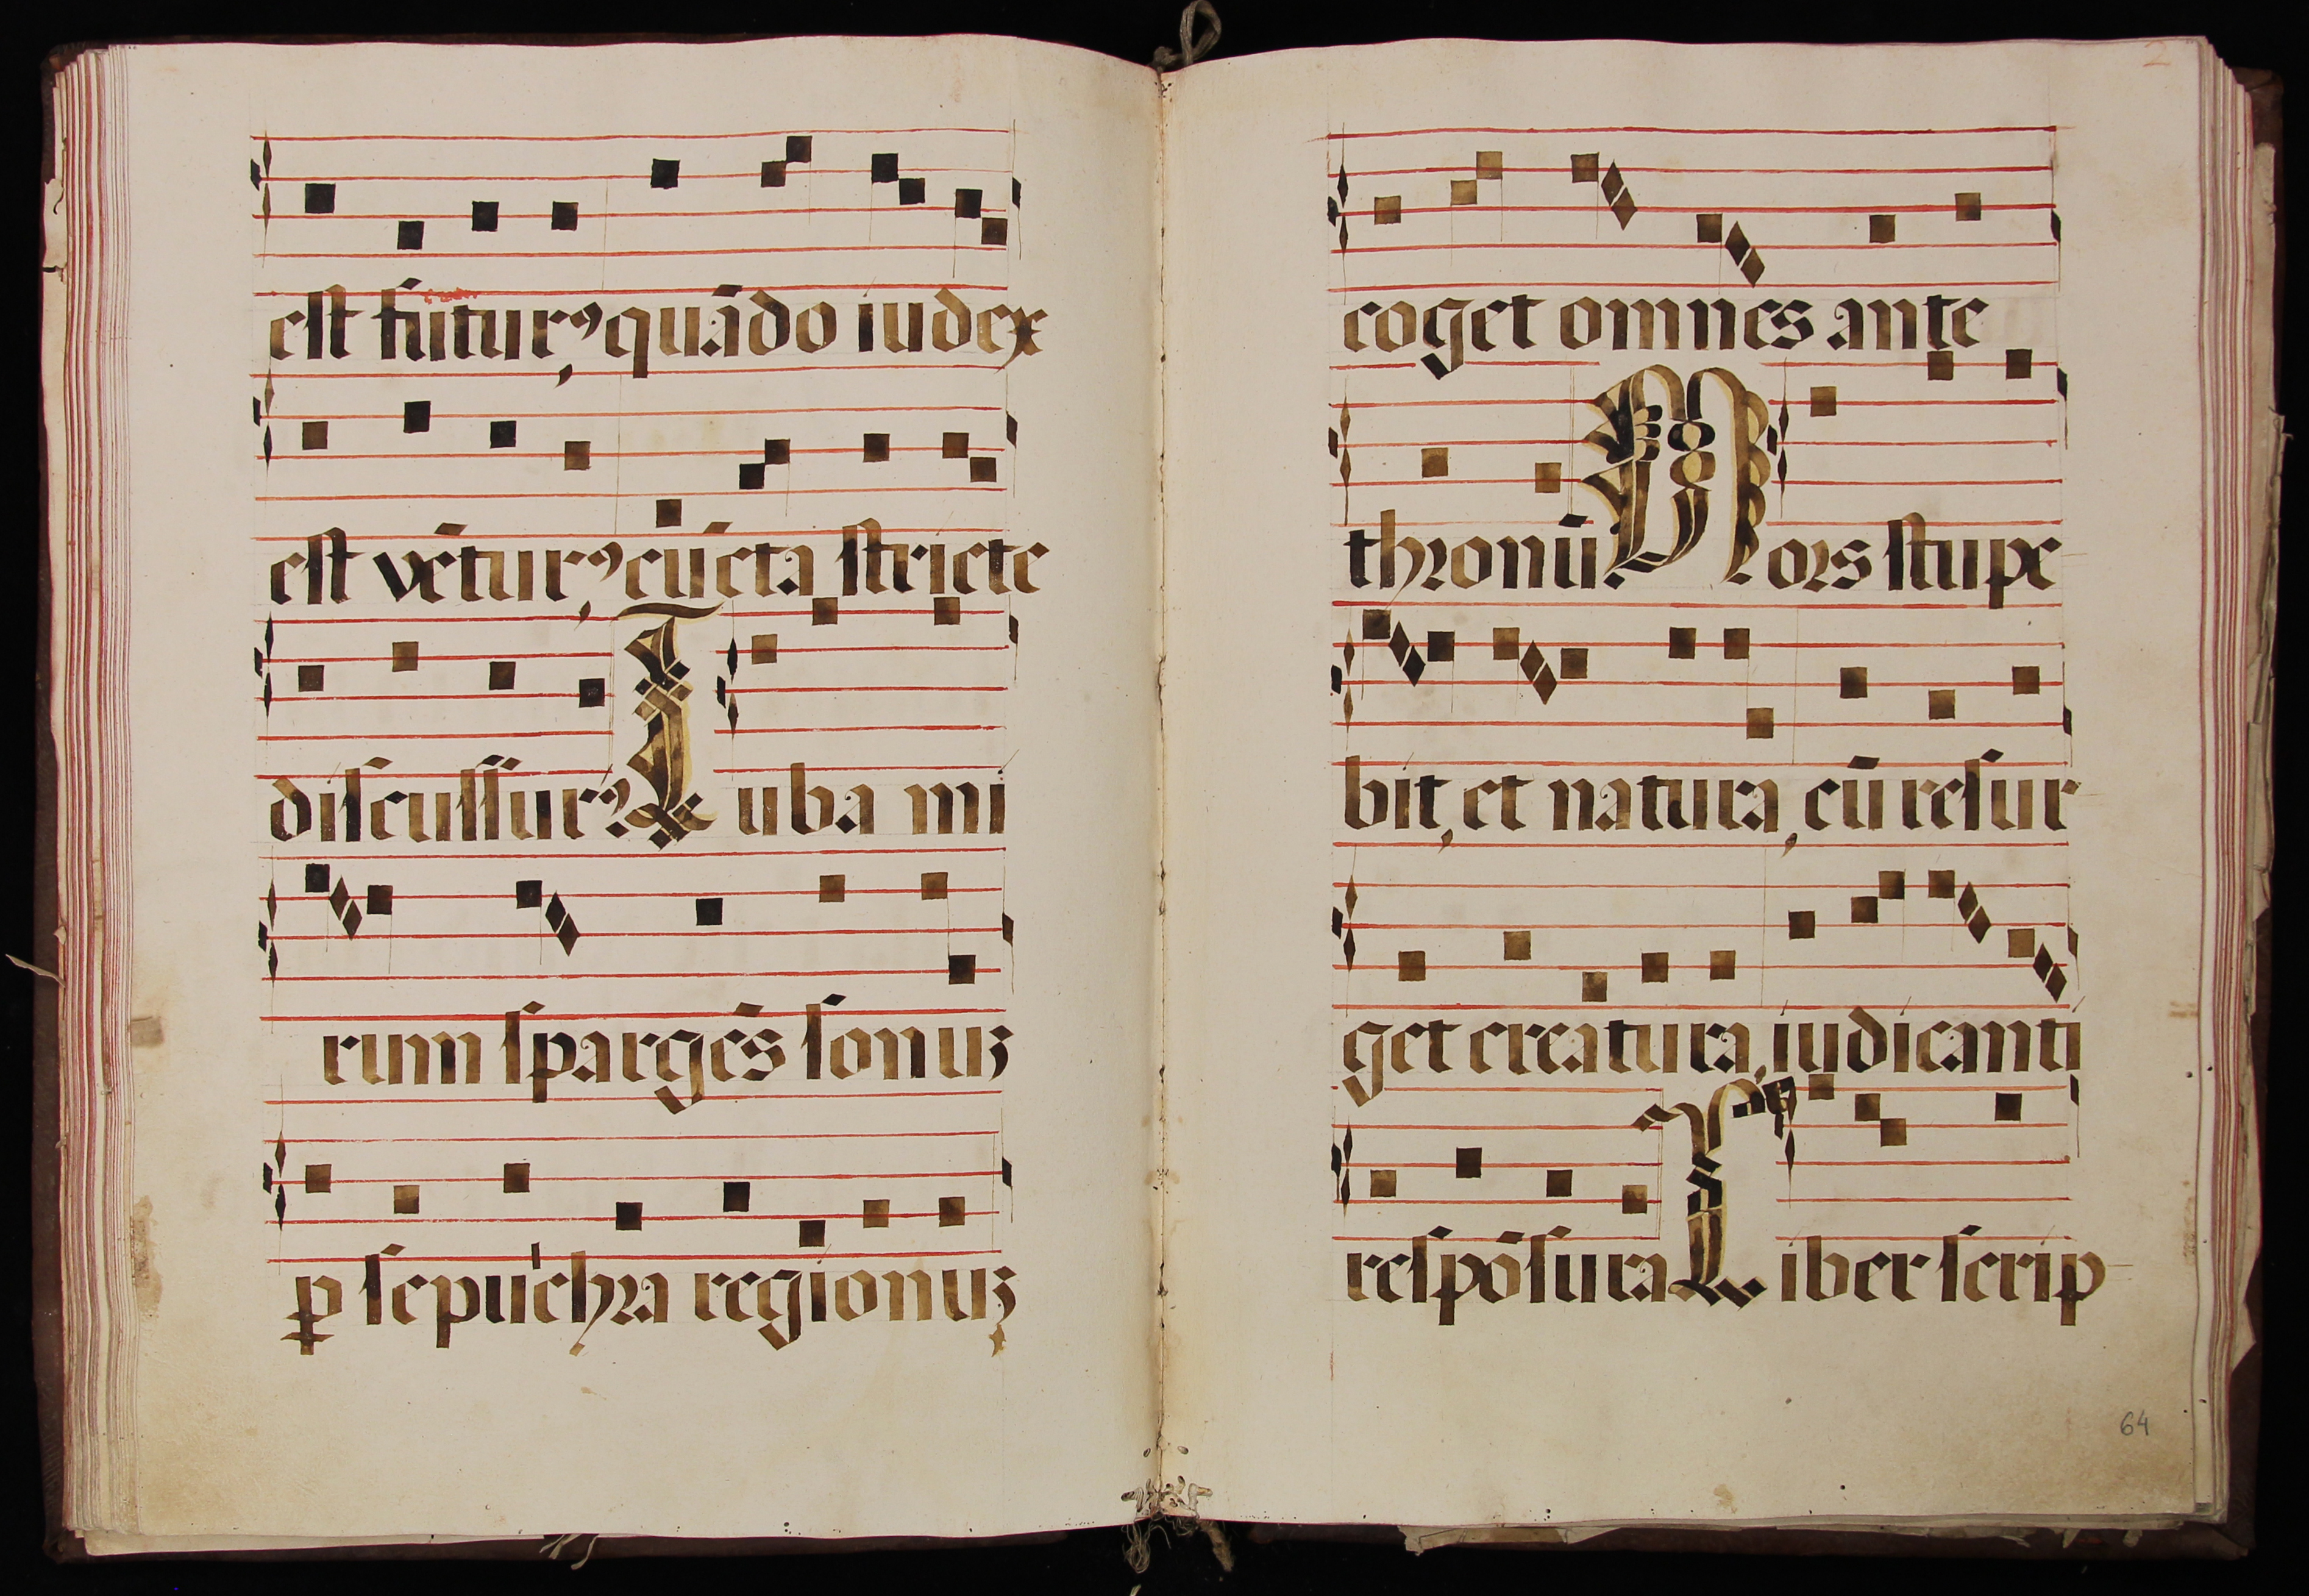 est futurꝰ quādo iudex
est vēturꝰ, cūcta stricte
discussurꝰ. Tuba mi
rum spargēs sonuȝ
ꝑ sepulchra regionuȝ
2
coget omnes ante
thronū. Mors stupe
bit, et natura, cū resur
get creatura, iudicanti
respōsura Liber scrip
64